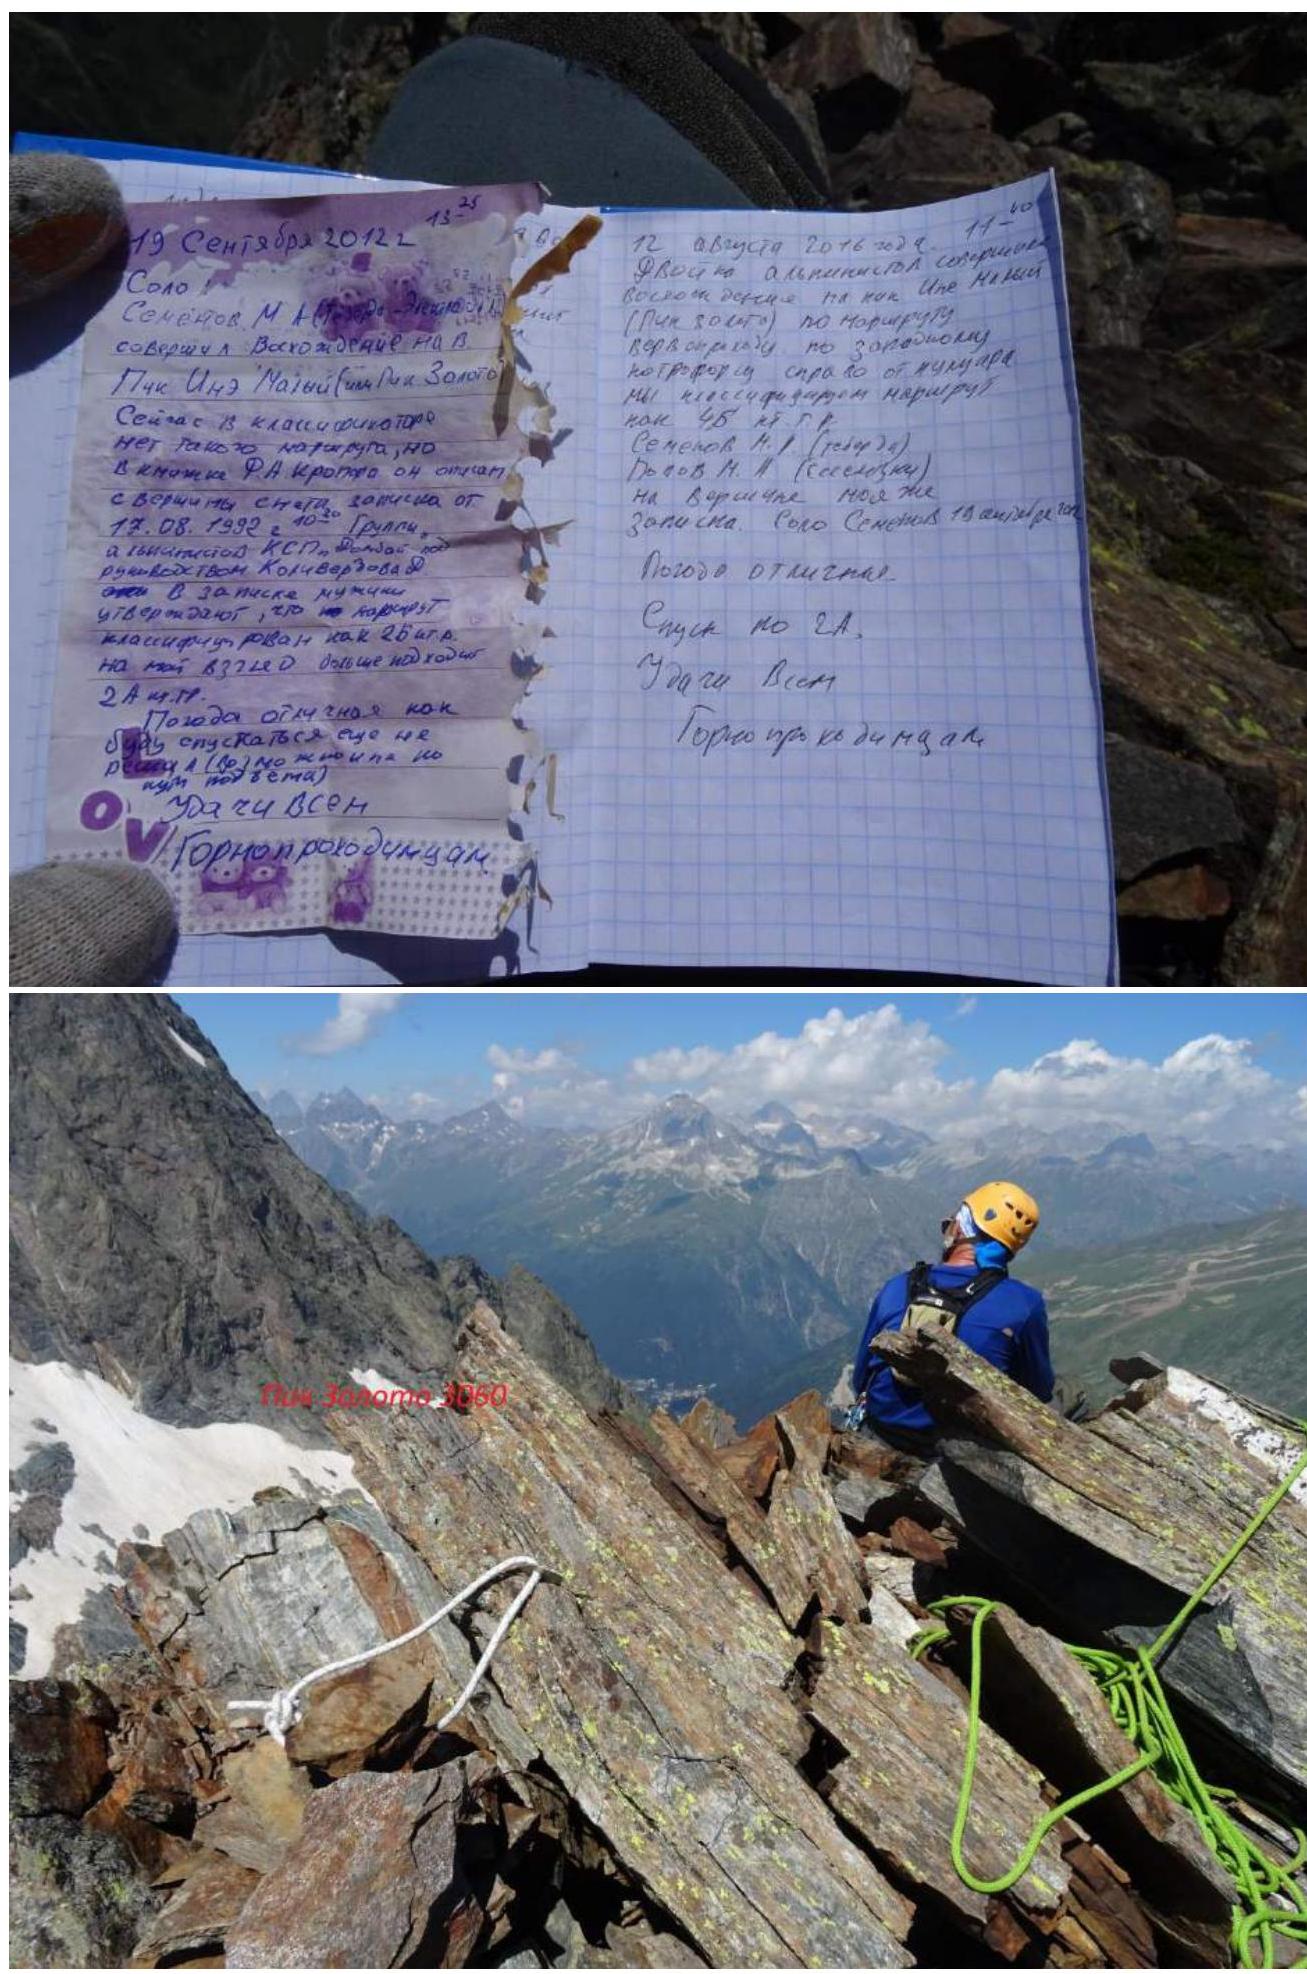 19 Сентября 2012 г 13-25
Соло
Семёнов М А
совершил Восхождение на В.
Пик Инэ Малый (или Пик Золото
Сейчас в классификаторе
нет такого маршрута, но
в книжке Ф.А. Кропфа он описан
с вершины снята записка от
17.08.1992 г 10-20 Группы
альпинистов КСП "Домбай" под
руководством
В записке мужики
утверждают, что маршрут
классифицирован как 2Б к.тр.
на мой взгляд больше подходит
2А к.тр.
Погода отличная как
буду спускаться еще не
решил (возможно и по
пути подъёма)
Удачи Всем
Горнопроходимцам
12 августа 2016 года. 11-40
Двойка альпинистов совершила
восхождение на пик Ине Малый
(Пик золото) по маршруту
первопроходу по западному
контрфорсу справо от кулуара
мы классифицируем маршрут
как 4Б к.т.р.
Семенов М. А. (теберда)
Попов М. А.
на вершине моя же
записка. Соло Семенов 19 сентября
Погода отличная.
Спуск по 2А.
Удачи Всем
Горнопроходимцам
Пик Золото 3060